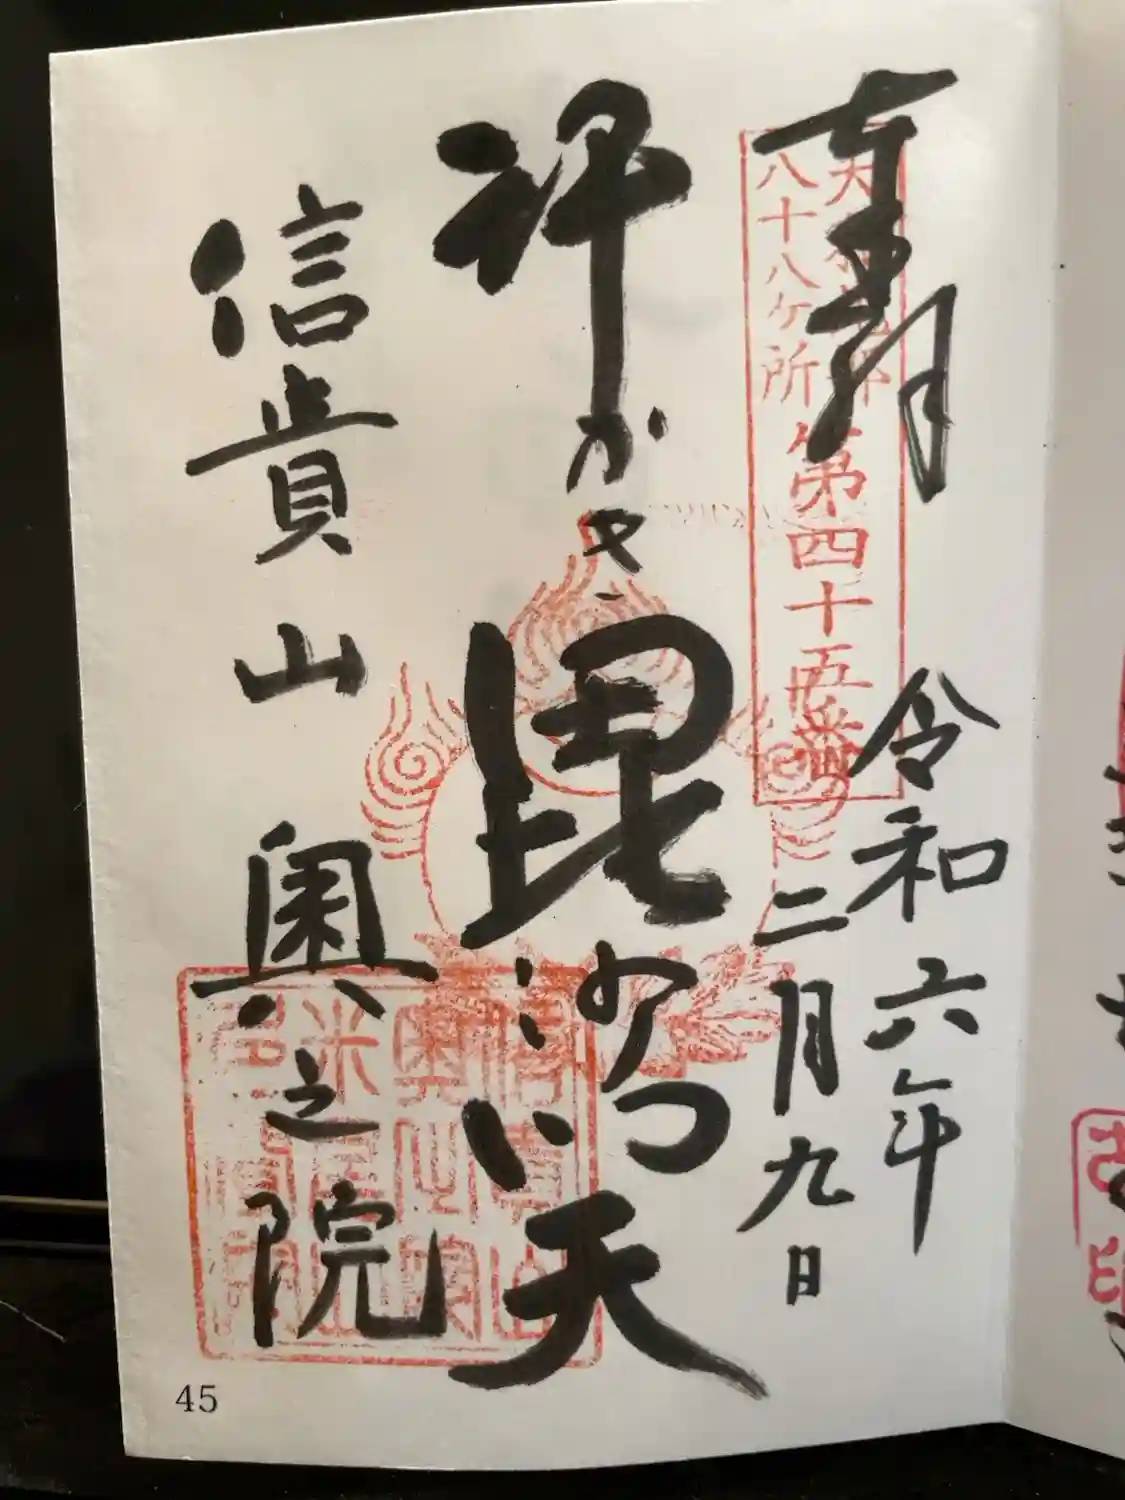 奉拝
大和北部
八十八ヶ所
第四十五番
令和六年
二月九日
汗かき
毘沙門天
信貴山奥之院
45